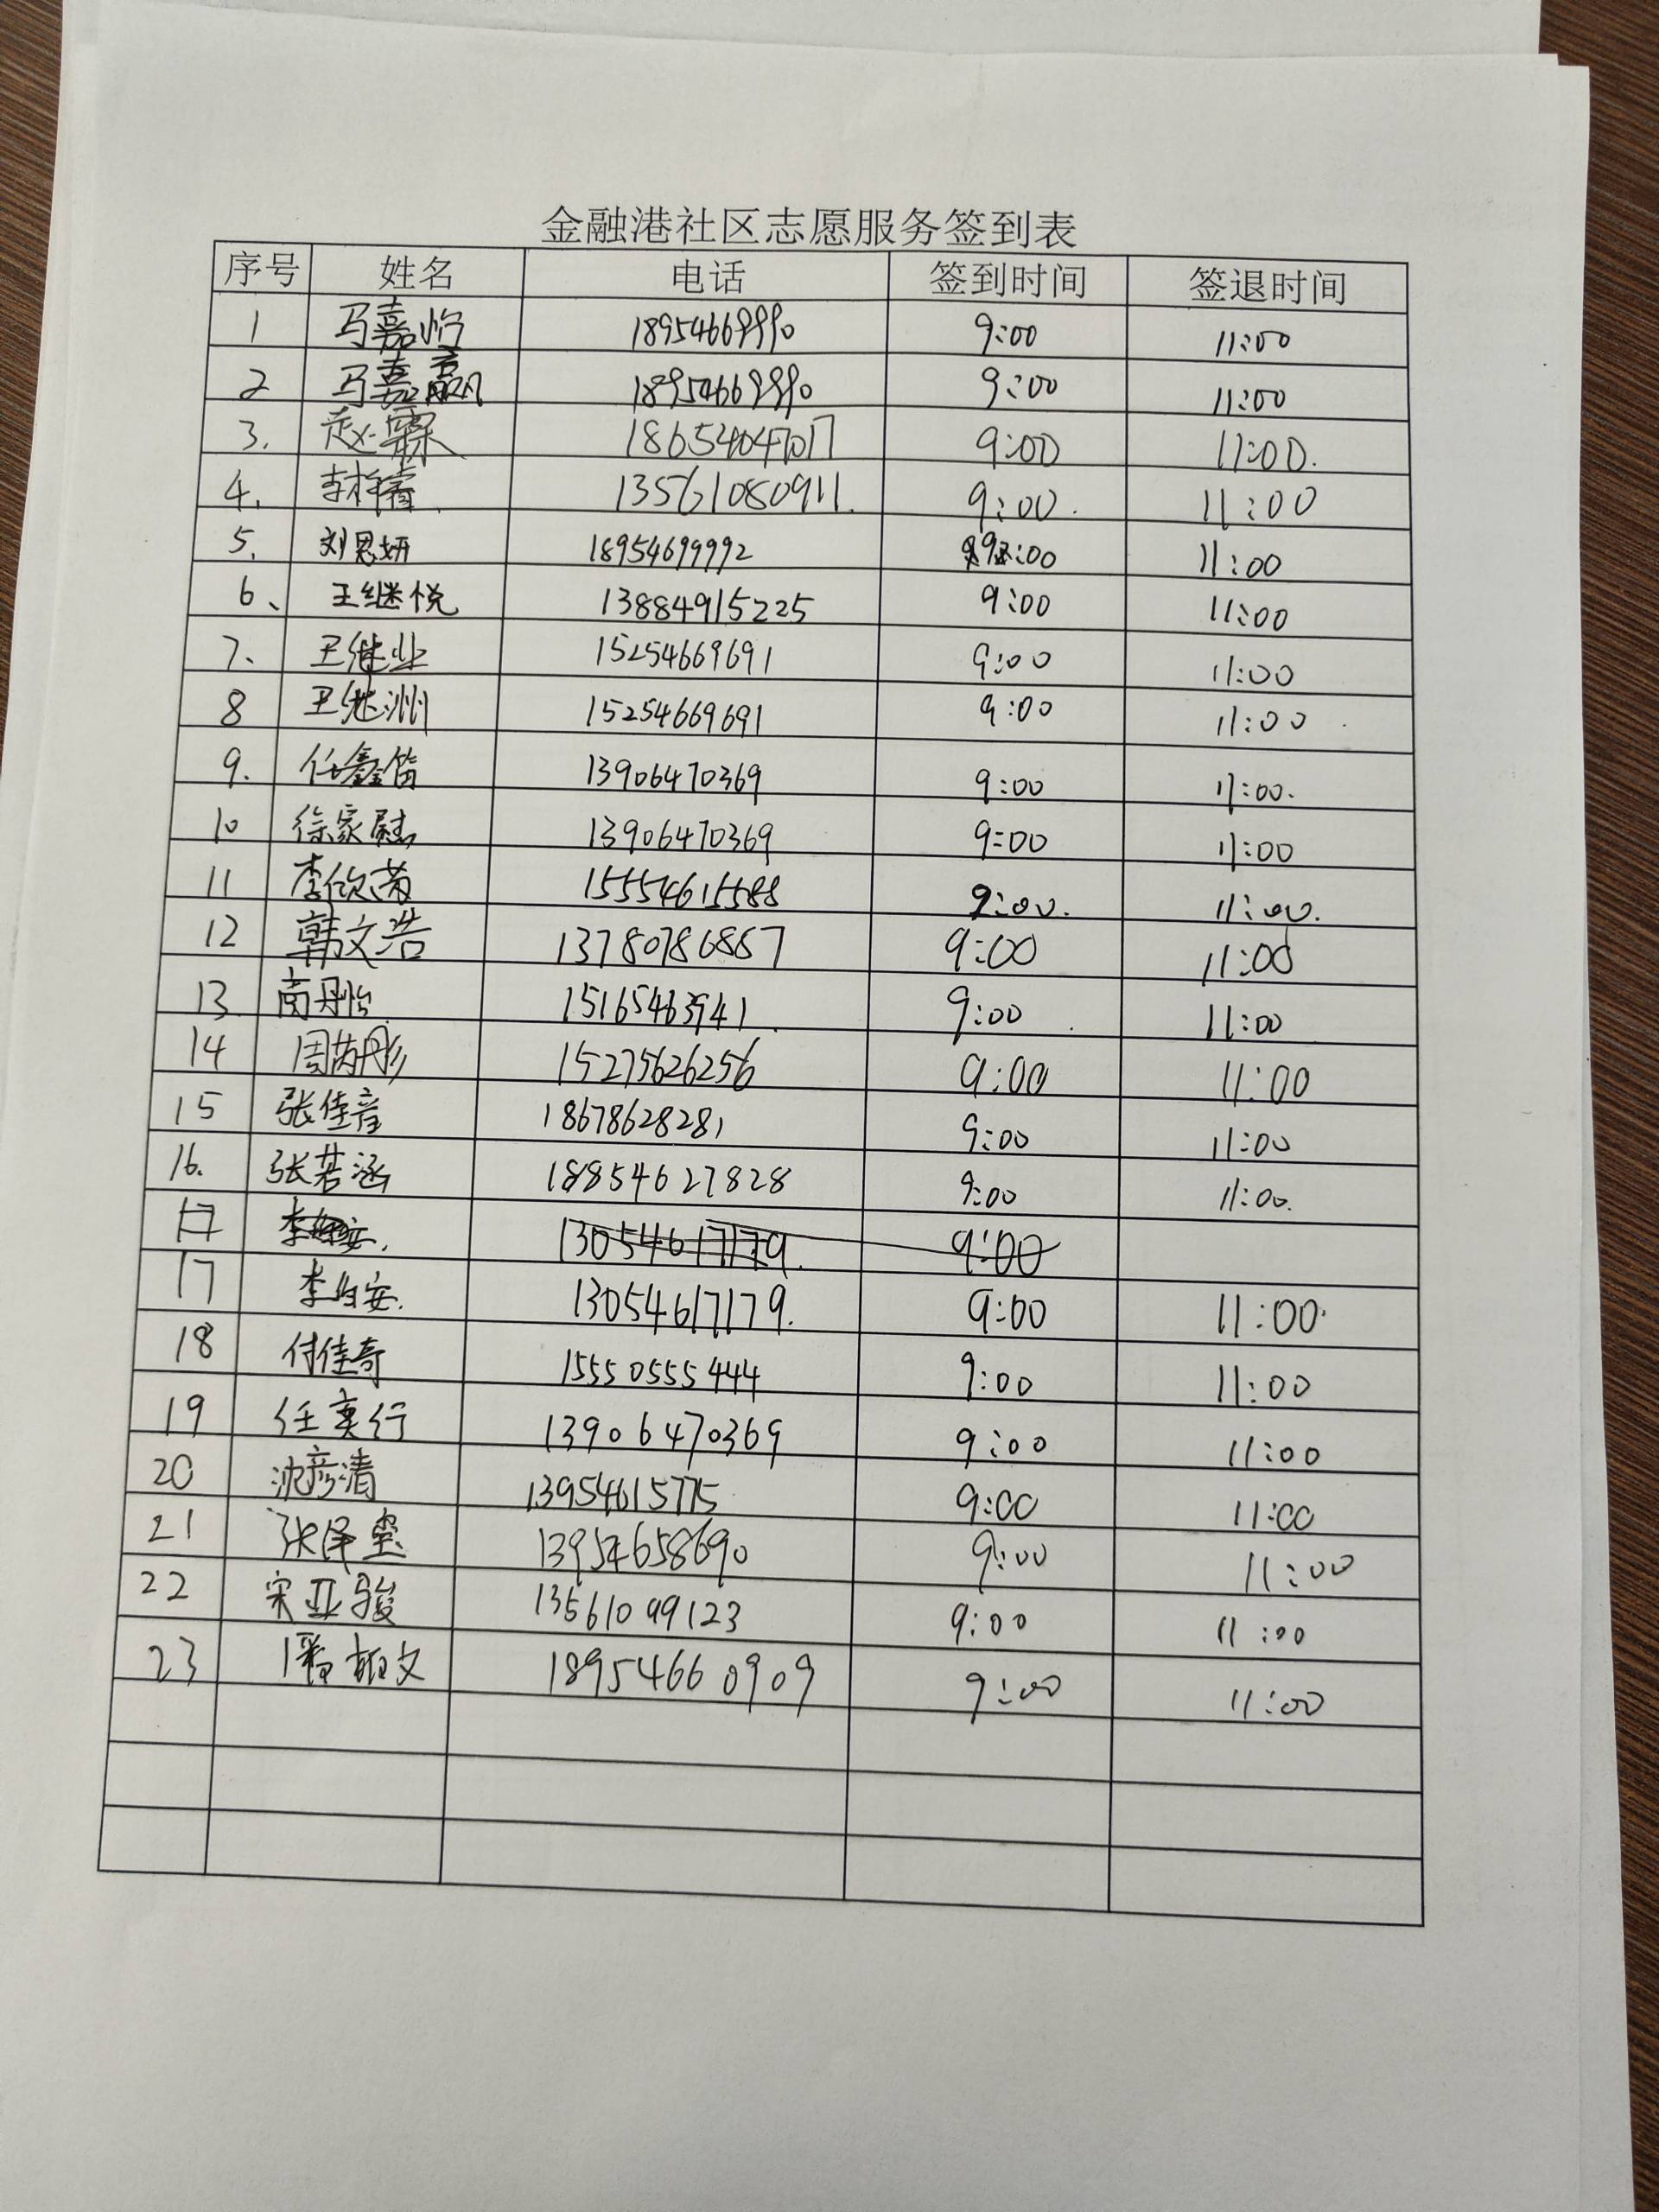 金融港社区志愿服务签到表
序号 姓名 电话 签到时间 签退时间
1 马嘉怡 18954669990 9:00 11:00
2 马嘉赢 18954669990 9:00 11:00
3. 赵霖 18654047017 9:00 11:00.
4. 李梓睿 13561080911. 9:00. 11:00
5. 刘恩妍 18954699992 9:00 11:00
6、 王继悦 13884915225 9:00 11:00
7、 王继业 15254669691 9:00 11:00
8 王继洲 15254669691 9:00 11:00
9. 任鑫笛 13906470369 9:00 11:00.
10 徐家慰 13906470369 9:00 11:00
11 李欣芮 15554615588 9:00. 11:00.
12 韩文浩 13780786867 9:00 11:00
13 高丹怡 15165463941. 9:00 11:00
14 周芮彤 15275626256 9:00 11:00
15 张佳音 18678628281 9:00 11:00
16. 张若涵 18854627828 9:00 11:00.
17 13054617179. 9:00
17 李均安. 13054617179. 9:00 11:00.
18 付佳奇 15550555444 9:00 11:00
19 任奕行 13906470369 9:00 11:00
20 沈彦清 13954615775 9:00 11:00
21 张泽玺 13954658690 9:00 11:00
22 宋亚骏 13561099123 9:00 11:00
23 文 18954660909 9:00 11:00